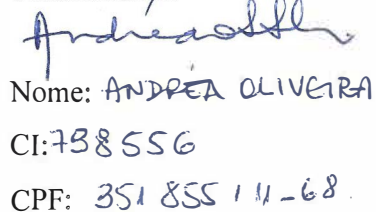 Nome: ANDREA OLIVEIRA
CI:798556
CPF: 351 855 111-68